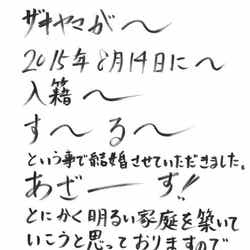 ザキヤマが〜
2015年8月14日に〜
入籍〜
す〜る〜
という事で結婚させていただきました。
あざーーす!!
とにかく明るい家庭を築いて
いこうと思っておりますので